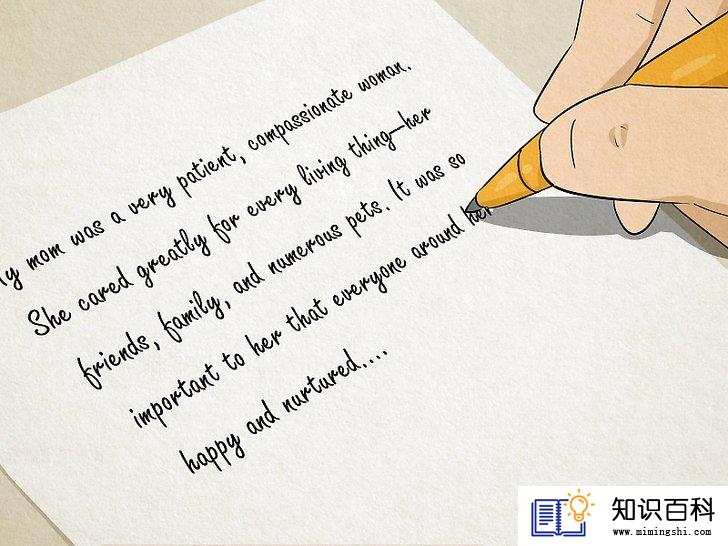 My mom was a very patient, compassionate woman.
She cared greatly for every living thing—her
friends, family, and numerous pets. It was so
important to her that everyone around her
happy and nurtured....
知识百科
www.mimingshi.com